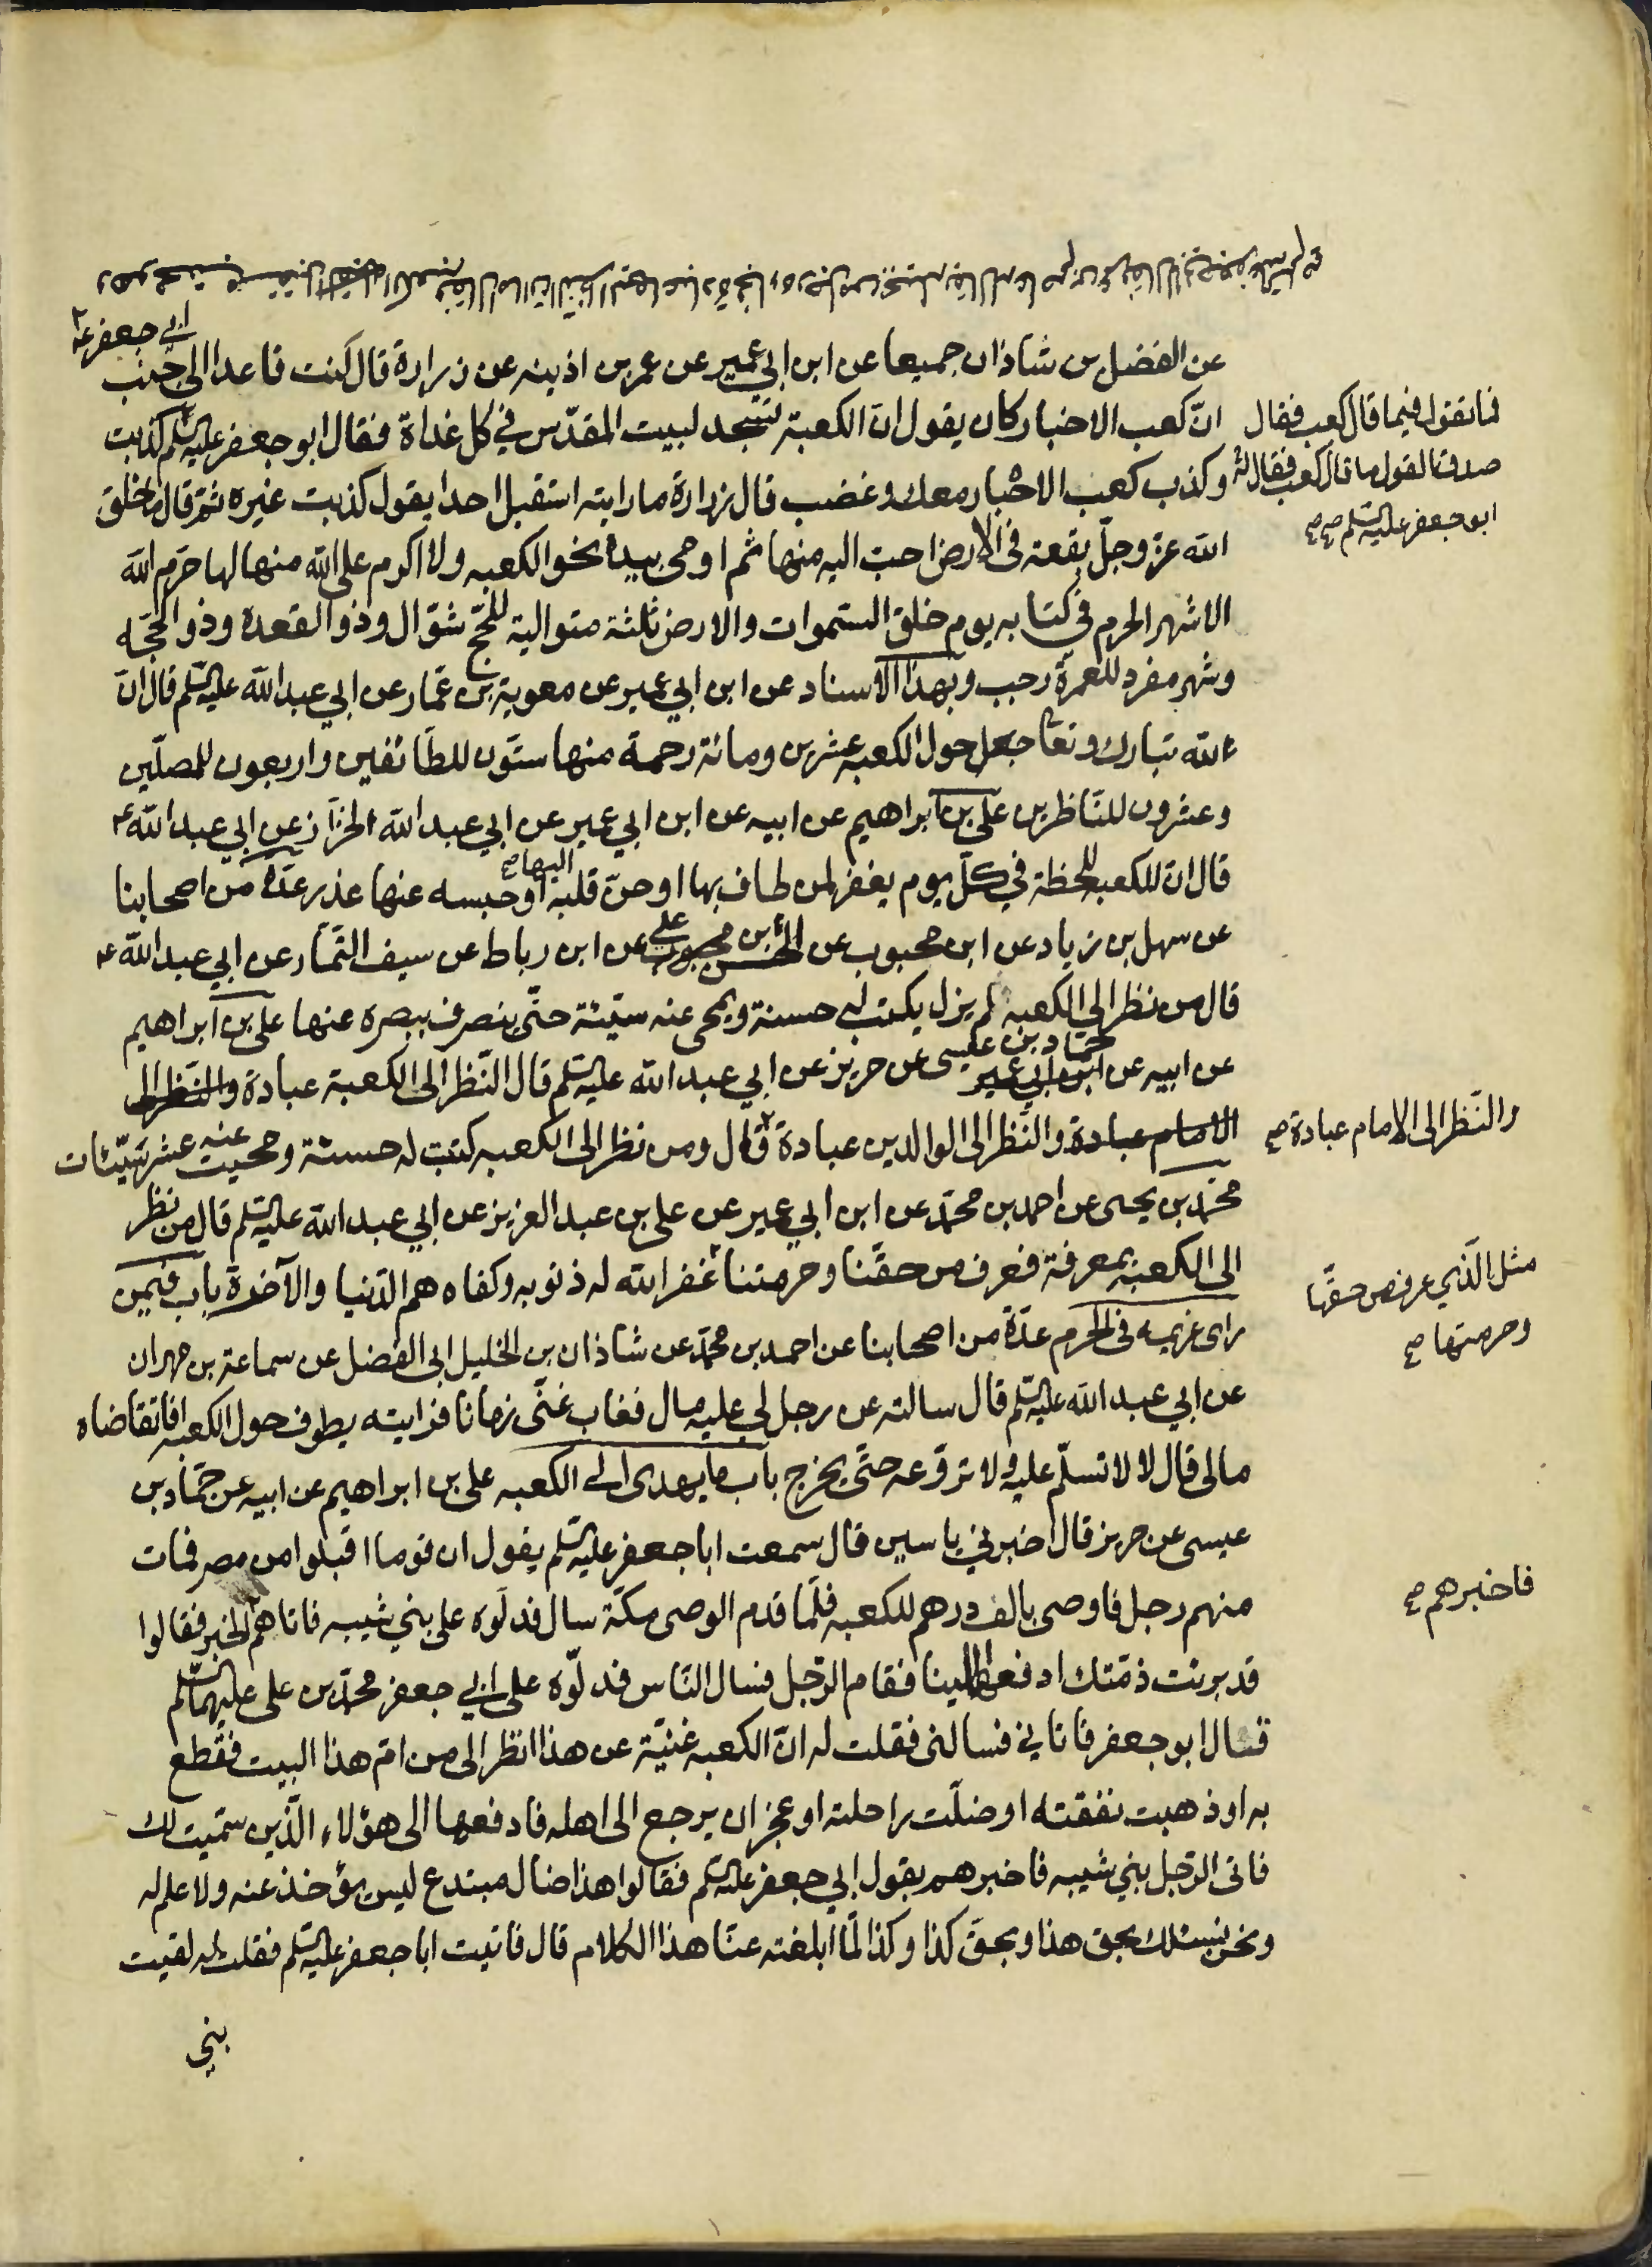 وهو محتب مستقبل الكعبة فقال اما ان النظر اليها عبادة فجاءه رجل من بجيلة يقال له عاصم بن عمر فقال لابي جعفر عليه السلم صح
ابي جعفر ع
عن الفضل بن شاذان جميعا عن ابن ابي عمير عن عمر بن اذينه عن زرارة قال كنت قاعدا الى جنب
انّ كعب الاحبار كان يقول ان الكعبة تسجد لبيت المقدّس في كل غداة فقال ابو جعفر عليه السلم كذبت
فما تقول فيما قال كعب فقال
صدق القول ما قال كعب فقال له
ابو جعفر عليه السلم صح صح
وكذب كعب الاحبار معك وغضب قال زرارة ما رايته استقبل احدا يقول كذبت غيره ثم قال ما خلق
الله عزّ وجلّ بقعة فى الارض احب اليه منها ثم اومى بيده نحو الكعبه ولا اكرم على الله منها لها حرّم الله
الاشهر الحرم في كتابه يوم خلق السموات والارض ثلثة متوالية للحجّ شوّال وذو القعدة وذو الحجّه
وشهر مفرد للعمرة رجب وبهذا الاسناد عن ابن ابي عمير عن معوية بن عمّار عن ابي عبد الله عليه السلم قال ان
الله تبارك وتعا جعل حول الكعبه عشرين ومائة رحمة منها ستّون للطّائفين واربعون للمصلّين
وعشرون للنّاظرين علي بن ابراهيم عن ابيه عن ابن ابي عمير عن ابي عبد الله الخزّاز عن ابي عبد الله ع
قال ان للكعبه للحظة في كلّ يوم يغفر لمن طاف بها او حنّ قلبه اليها صح او حبسه عنها عذر عدّة من اصحابنا
عن سهل بن زياد عن ابن محبوب عن الحسن بن محبوب علي عن ابن رباط عن سيف التّمّار عن ابي عبد الله ع
قال من نظر الي الكعبه لم يزل يكتب له حسنة ويمحى عنه سيّئة حتّى ينصرف ببصره عنها علي بن ابراهيم
عن ابيه عن ابن ابي عمير حمّاد بن عيسى عن حريز عن ابي عبد الله عليه السلم قال النّظر الى الكعبة عبادة والنّظر الى
الامام عبادة والنّظر الى الوالدين عبادة قال ومن نظر الى الكعبه كتبت له حسنة ومحيت عنه عشر سيّئات
والنّظر الى الامام عبادة صح
محمّد بن يحيى عن احمد بن محمّد عن ابن ابي عمير عن علي بن عبد العزيز عن ابي عبد الله عليه السلم قال من نظر
الى الكعبة بمعرفة فعرف من حقّنا وحرمتنا غفر الله له ذنوبه وكفاه هم الدّنيا والآخرة باب فيمن
مثل الّذي عرف من حقّها
وحرمتها صح
راى غريمه فى الحرم عدّة من اصحابنا عن احمد بن محمّد عن شاذان بن الخليل ابى الفضل عن سماعة بن مهران
عن ابي عبد الله عليه السلم قال سالته عن رجل لي عليه مال فغاب عنّى زمانا فرايته يطوف حول الكعبه افاتقاضاه
مالى قال لا لا تسلّم عليه ولا تروّعه حتّى يخرج باب ما يهدى الى الكعبه علي بن ابراهيم عن ابيه عن حمّاد بن
عيسى عن حريز قال اخبرني ياسين قال سمعت ابا جعفر عليه السلم يقول ان قوما اقبلوا من مصر فمات
منهم رجل فاوصى بالف درهم للكعبه فلمّا قدم الوصى مكّة سال فدلّوه على بني شيبه فاتاهم الخبر فقالوا
فاخبرهم صح
قد برئت ذمّتك ادفعها الينا فقام الرّجل فسال النّاس فدلّوه على ابي جعفر محمّد بن على عليهما السّلم
قال ابو جعفر فاتاني فسالنى فقلت له انّ الكعبه غنيّة عن هذا انظر الى من امّ هذا البيت فقطع
به او ذهبت نفقته او ضلّت راحلته او عجز ان يرجع الى اهله فادفعها الى هؤلاء الّذين سمّيت لك
فاتى الرّجل بني شيبه فاخبرهم بقول ابي جعفر عليه السلم فقالوا هذا ضال مبتدع ليس يؤخذ عنه ولا علم له
ونحن نسئلك بحق هذا وبحقّ كذا وكذا لمّا ابلغته عنّا هذا الكلام قال فاتيت ابا جعفر عليه السلم فقلت له لقيت
بني